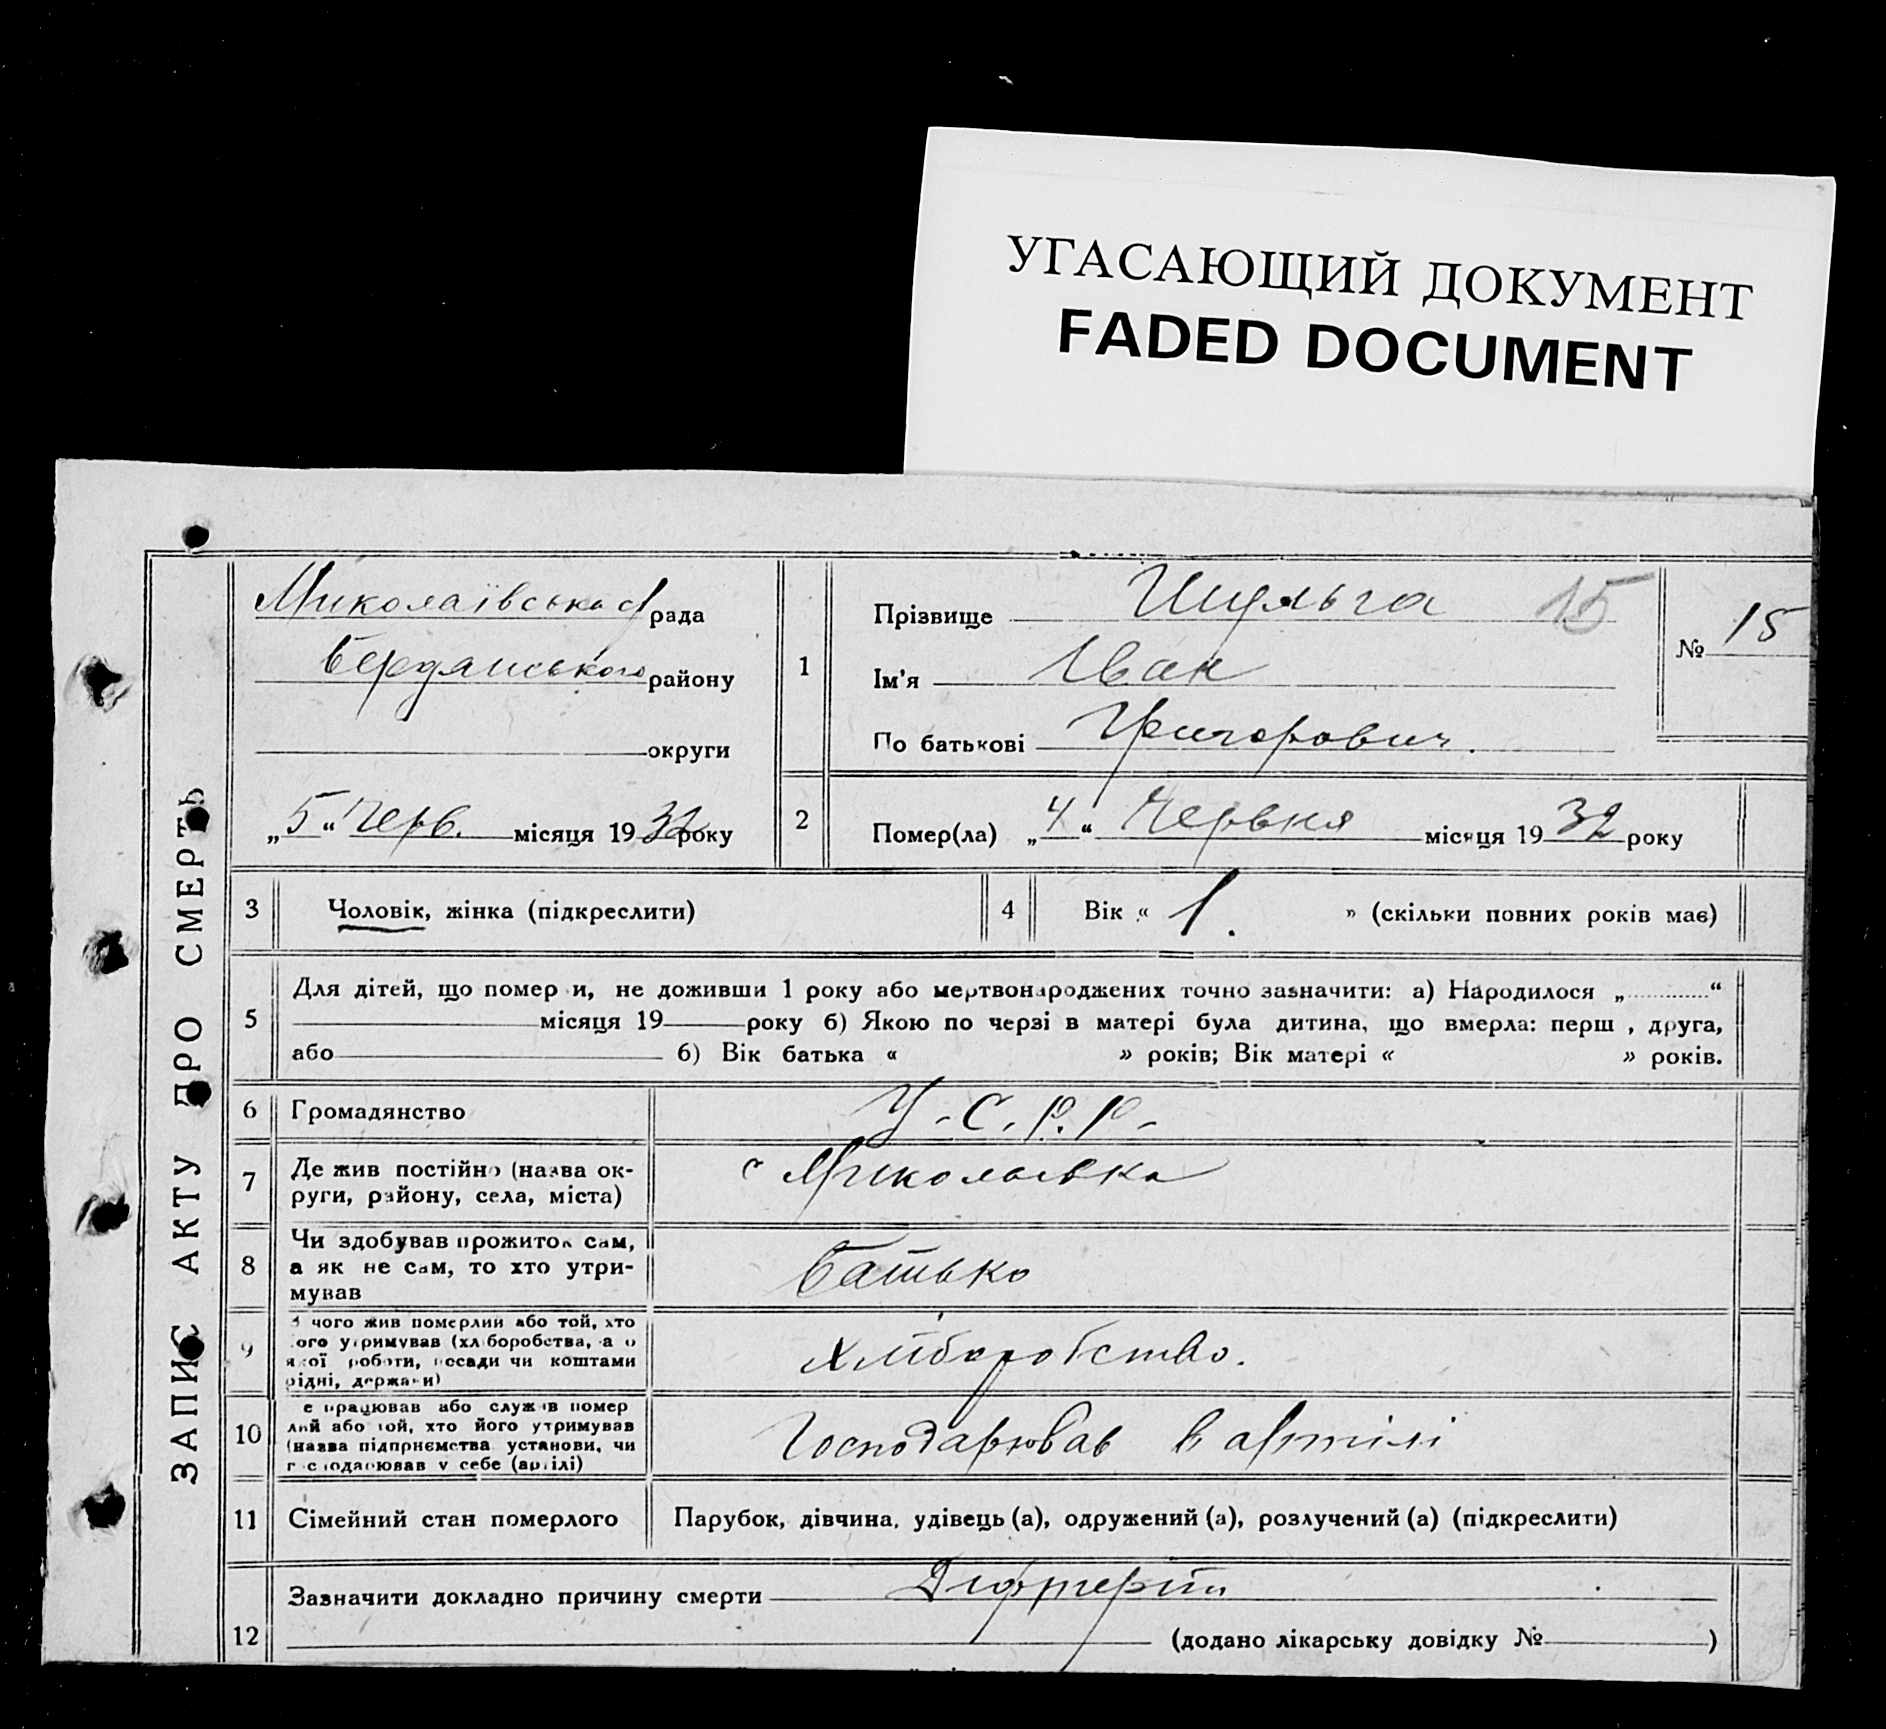 УГАСАЮЩИЙ ДОКУМЕНТ
FADED DOCUMENT
ЗАПИС АКТУ ПРО СМЕРТЬ
Миколаївська с/рада
Бердянського району
округи
„5“ Черв. місяця 1932 року
1
Прізвище Шульга 15
Ім'я Іван
По батькові Григорович.
№ 15
2
Помер(ла) „4“ Червня місяця 1932 року
3 Чоловік, жінка (підкреслити)
4 Вік „ 1. " (скільки повних років має)
5
Для дітей, що помер и, не доживши 1 року або мертвонароджених точно зазначити: а) Народилося „ “
місяця 19 року б) Якою по черзі в матері була дитина, що вмерла: перш , друга,
або б) Вік батька « » років; Вік матері « » років.
6 Громадянство У.С.Р.Р.
7 Де жив постійно (назва ок-
руги, району, села, міста)
с Миколаївка
8 Чи здобував прожиток сам,
а як не сам, то хто утри-
мував
батько
9 З чого жив померлий або той, хто
його утримував (хліборобства, а о
якої роботи, посади чи коштами
рідні, держави)
Хліборобство.
10 е працював або служив помер
лий або той, хто його утримував
(назва підприємства установи, чи
господарював у себе (артілі)
Господарював в артілі
11 Сімейний стан померлого Парубок, дівчина, удівець (а), одружений (а), розлучений (а) (підкреслити)
12 Зазначити докладно причину смерти Дифтеріт
(додано лікарську довідку № )